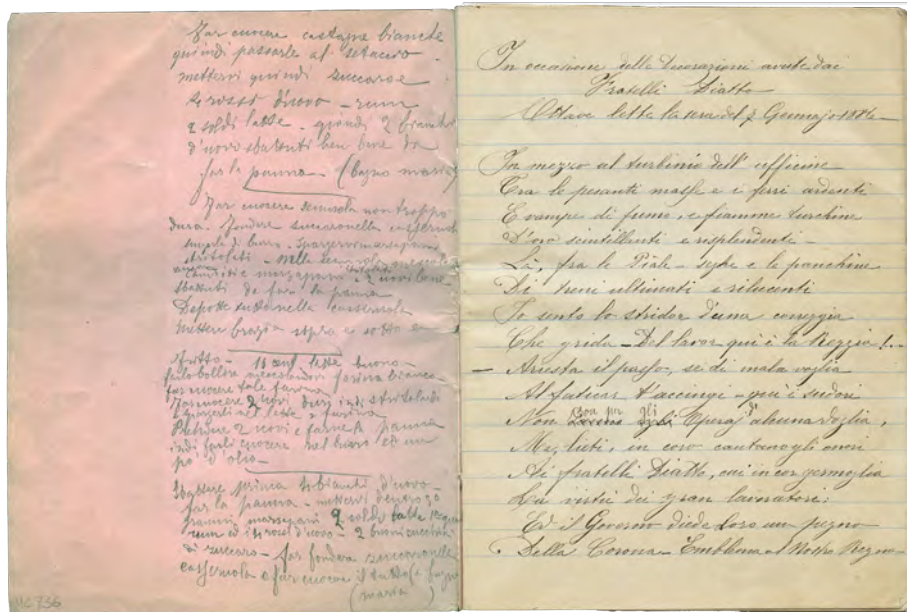 Far cuocere castagne bianche
quindi passarle al setaccio
metterci quindi zuccaro e
rosso d'uovo - rum
2 soldi latte - quindi 2 bianchi
d'uovo sbattuti ben bene da
far la panna - (bagno maria)
Far cuocere semola non troppo
dura. Fondere zuccaro nella casseruola
di burro
tritolati - nella
canditi e marzapani 2 uovi bene
sbattuti da far la panna
Deporre tutto nella casseruola
Mettere bragia sopra e sotto
Fritto - latte buono
farlo bollire farina bianca
far cuocere tale farina
Far cuocere 2 uovi duri indi stritolarli
e spargerli nel latte e farina
Prendere 2 uovi e farne la panna
indi farli cuocere nel burro ed un
po' d'olio -
Sbattere prima bianchi d'uovo -
far la panna - metterci dentro 30
grammi marzapani 2 soldi latte
rum ed rossi d'uovo - 2 buoni cucchiai
di zuccaro - far fondere zuccaro nella
casseruola e far cuocere il tutto a bagno
(maria)
MC 736
In occasione delle Decorazioni avute dai
Fratelli Diatto
Ottave lette la sera del Gennajo 1886
In mezzo al turbinio dell' officine
Tra le pesanti masse e i ferri ardenti
E vampe di fumo, e fiamme turchine
D'oro scintillanti e risplendenti -
Là, fra le Piale - seghe e le panchine
Di treni ultimati e rilucenti
Io sento lo stridor d'una correggia
Che grida - Del lavor qui è la Reggia!...
- Arresta il passo, se di mala voglia
Al faticar t'accinge - qui è sudori
Non v'è per gli Operaj d'alcuna doglia,
Ma, lieti, in coro cantano gli onori
Ai fratelli Diatto, cui in cor germoglia
La virtù dei gran lavoratori;
Ed il Governo diede loro un pegno
Della Corona - Emblema al Nostro Regno -